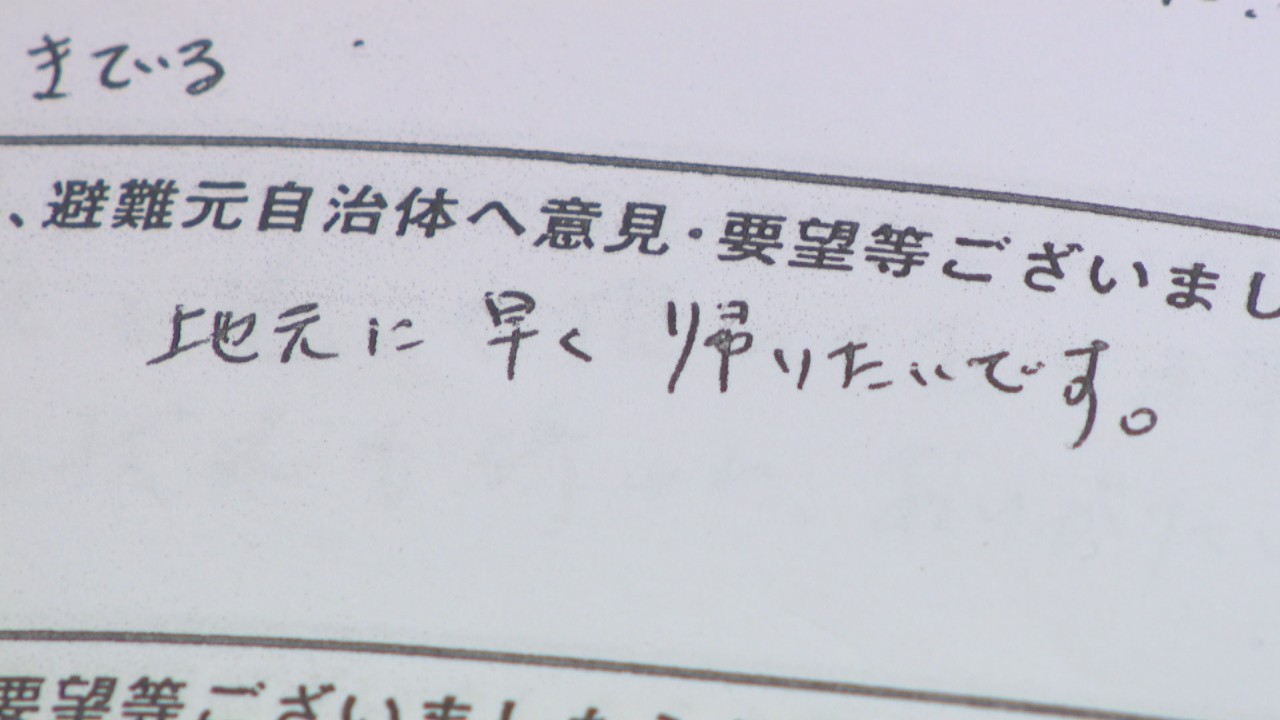 きている
、避難元自治体へ意見・要望等ございまし
地元に早く帰りたいです。
要望等ございましたら